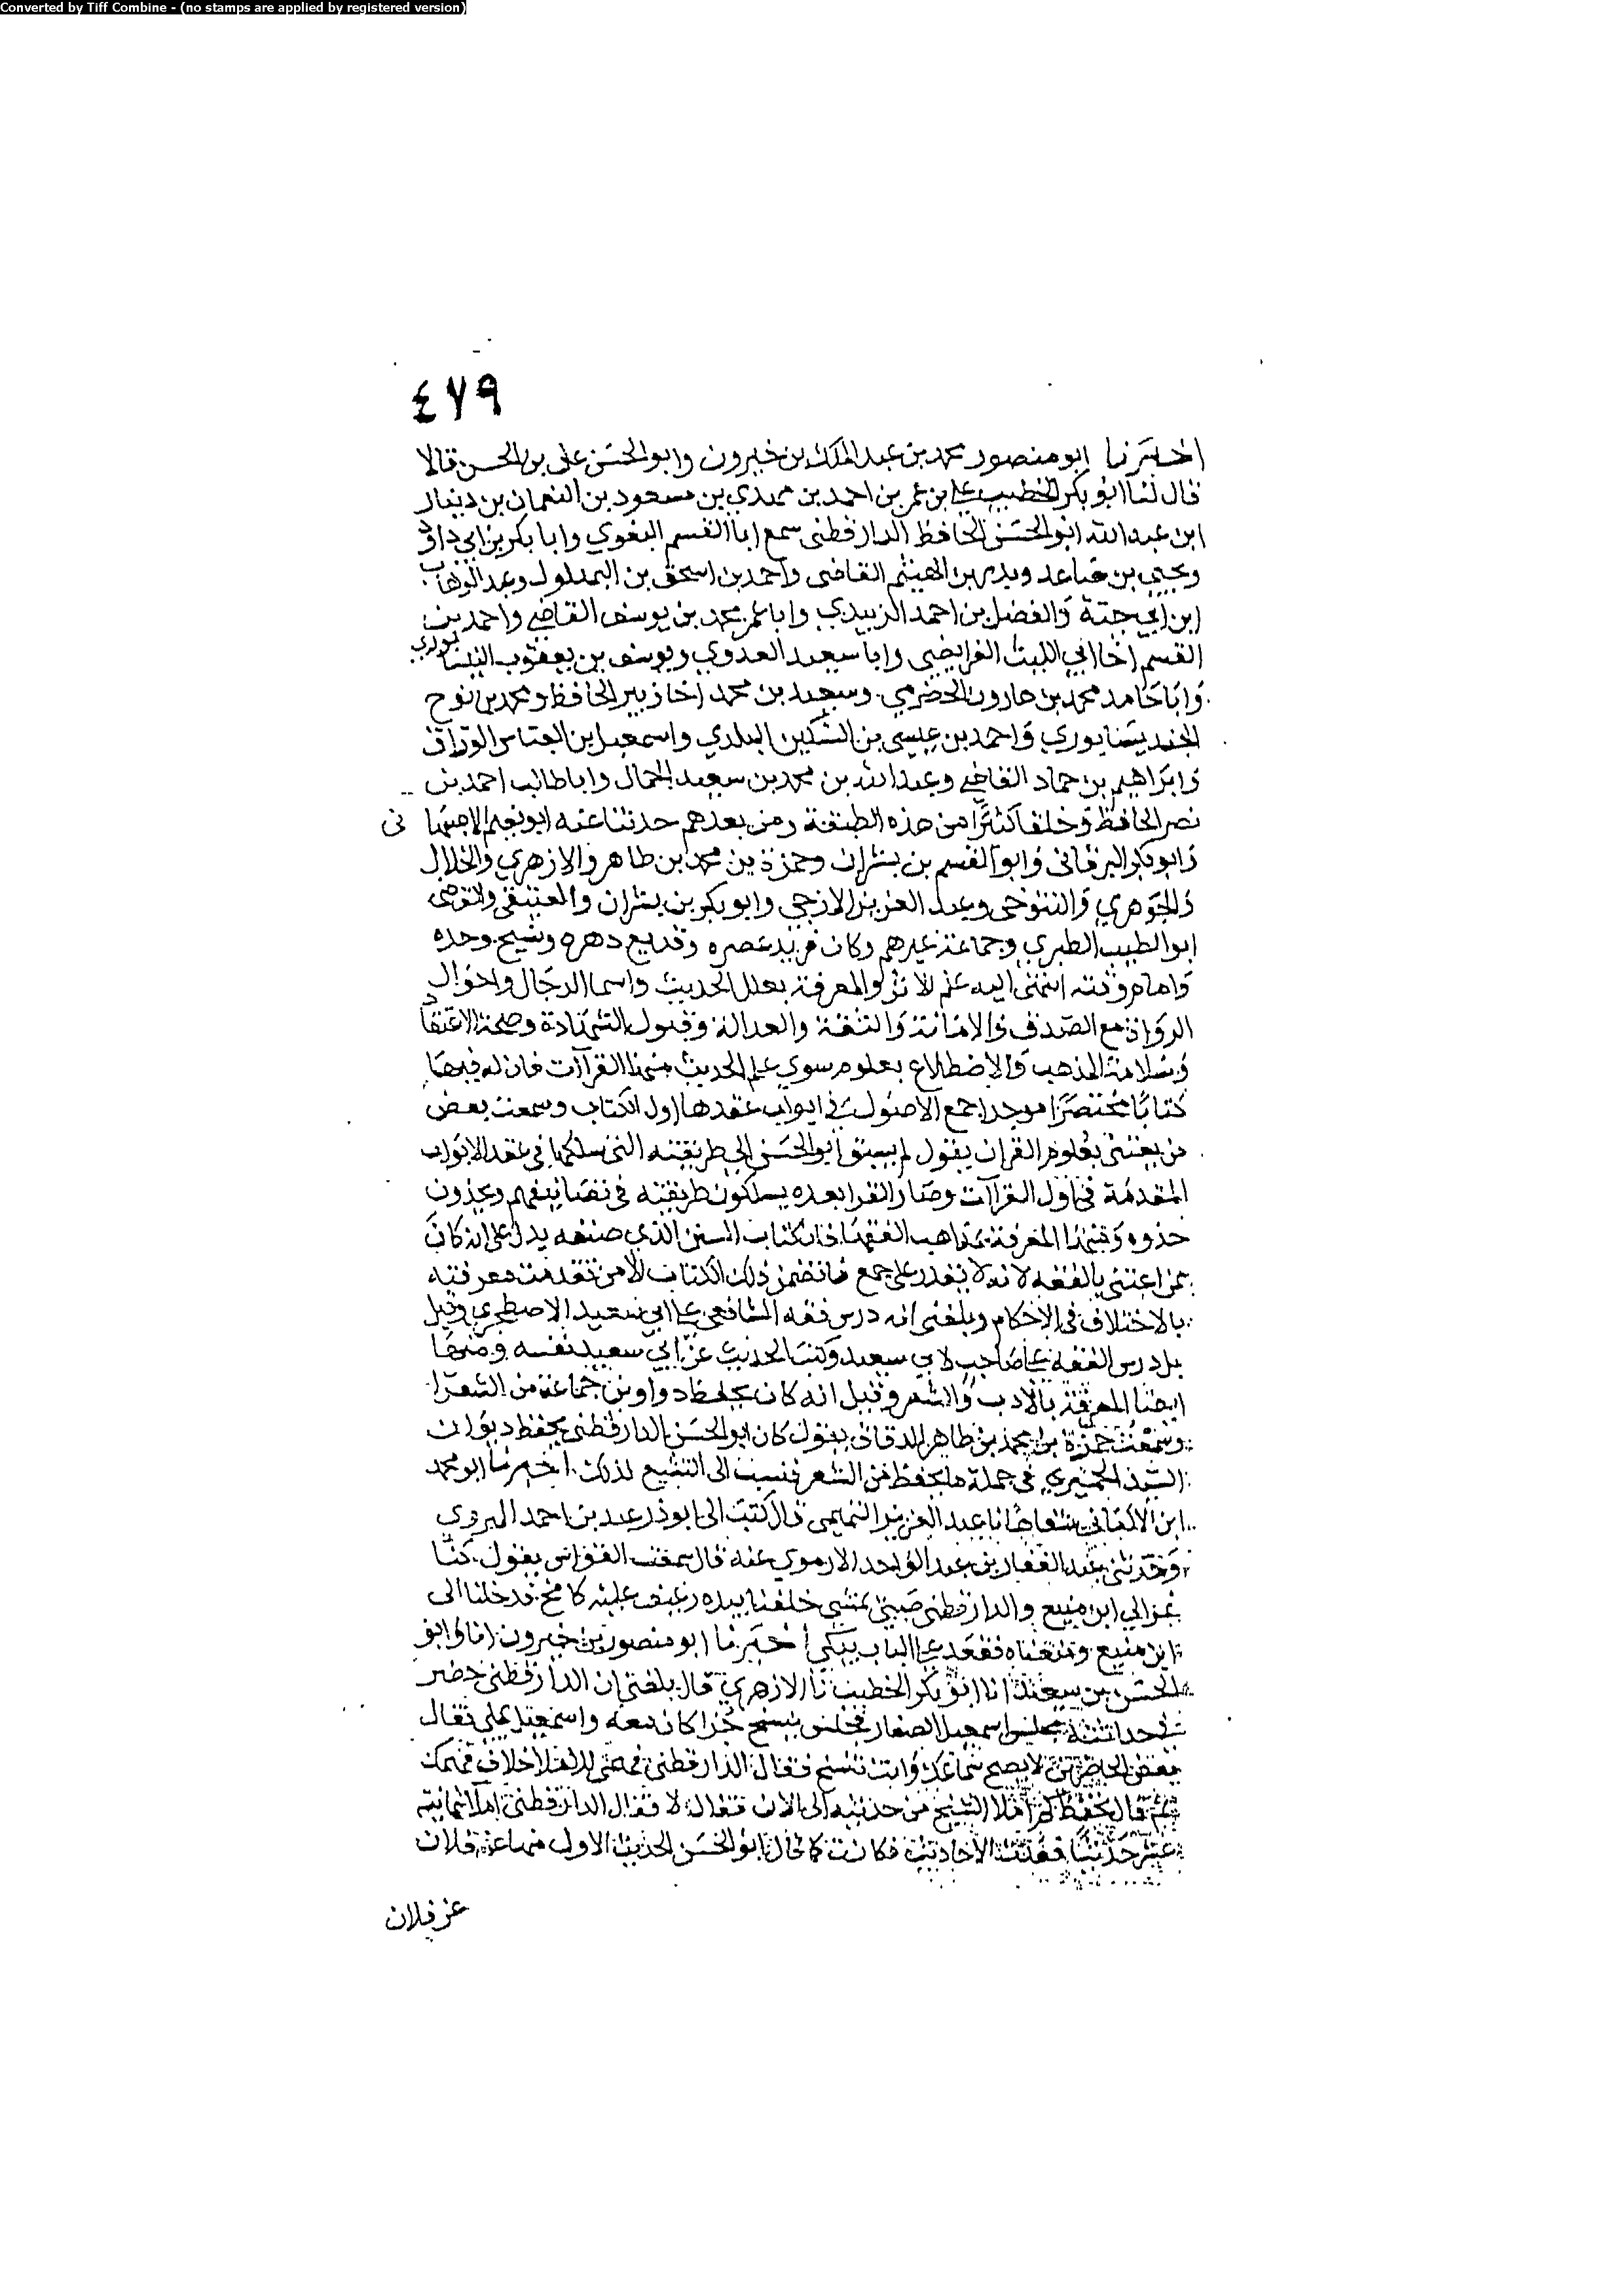 Converted by Tiff Combine - (no stamps are applied by registered version)
٤٧٩
اخبرنا ابو منصور محمد بن عبد الملك بن خيرون وابو الحسن علي بن الحسن قالا
قال لنا ابو بكر الخطيب علي بن عمر بن احمد بن مهدي بن مسعود بن النعمان بن دينار
ابن عبد الله ابو الحسن الحافظ الدارقطني سمع ابا القسم البغوي وابا بكر بن ابي داود
ويحيى بن صاعد وبدر بن الهيثم القاضي واحمد بن اسحق بن البهلول وعبد الوهاب
ابن ابي حية والفضل بن احمد الزبيدي وابا عمر محمد بن يوسف القاضي واحمد بن
القسم اخا ابي الليث الفرايضي وابا سعيد العدوي ويوسف بن يعقوب النيسابوري
وابا حامد محمد بن هارون الحضرمي وسعيد بن محمد اخا زبير الحافظ ومحمد بن نوح
الجنديسابوري واحمد بن عيسى بن السكين البلدي واسمعيل بن العباس الوراق
وابراهيم بن حماد القاضي وعبد الله بن محمد بن سعيد الجمال وابا طالب احمد بن
نصر الحافظ وخلقا كثيرا من هذه الطبقة ومن بعدهم حدثنا عنه ابو نعيم الاصبهاني
وابو بكر البرقاني وابو القسم بن بشران وحمزة بن محمد بن طاهر والازهري والخلال
والجوهري والتنوخي وعبد العزيز الازجي وابو بكر بن بشران والعتيقي والقاضي
ابو الطيب الطبري وجماعة غيرهم وكان فريد عصره وقريع دهره ونسيج وحده
وامام وقته انتهى اليه علم الاثر والمعرفة بعلل الحديث واسما الرجال واحوال
الرواة مع الصدق والامانة والثقة والعدالة وقبول الشهادة وصحة الاعتقاد
وسلامة المذهب والاضطلاع بعلوم سوى علم الحديث منها القراآت فان له فيها
كتابا مختصرا موجزا جمع الاصول في ابواب عقدها اول الكتاب وسمعت بعض
من يعتني بعلوم القران يقول لم يسبق ابو الحسن الى طريقته التي سلكها في عقد الابواب
المقدمة في اول القراآت وصار القرا بعده يسلكون طريقته في تصانيفهم ويحذون
حذوه ومنها المعرفة بمذاهب الفقها فان كتاب السنن الذي صنفه يدل على انه كان
ممن اعتنى بالفقه لانه لا يقدر على جمع ما تضمن ذلك الكتاب الا من تقدمت معرفته
بالاختلاف في الاحكام وبلغني انه درس فقه الشافعي على ابي سعيد الاصطخري وقيل
بل درس الفقه على صاحب لابي سعيد وكتب الحديث عن ابي سعيد نفسه ومنها
ايضا المعرفة بالادب والشعر وقيل انه كان يحفظ دواوين جماعة من الشعرا
وسمعت حمزة بن محمد بن طاهر الدقاق يقول كان ابو الحسن الدارقطني يحفظ ديوان
السيد الحميري في جملة ما يحفظ من الشعر فنسب الى التشيع لذلك اخبرنا ابو محمد
ابن الاكفاني شفاها نا عبد العزيز التميمي قال كتب الي ابو ذر عبد بن احمد الهروي
وحدثني عبد الغفار بن عبد الواحد الارموي عنه قال سمعت القواس يقول كنا
نمر الى ابن منيع والدارقطني صبي يمشي خلفنا بيده رغيف عليه كامخ فدخلنا الى
ابن منيع ومنعناه فقعد على الباب يبكي اخبرنا ابو منصور بن خيرون انا وابو
الحسن بن سعيد انا ابو بكر الخطيب نا الازهري قال بلغني ان الدارقطني حضر
في حداثته مجلس اسمعيل الصفار فجلس ينسخ جزا كان معه واسمعيل يملي فقال
بعض الحاضرين لا يصح سماعك وانت تنسخ فقال الدارقطني فهمي للاملا خلاف فهمك
ثم قال تحفظ كم املا الشيخ من حديث الى الان فقال لا فقال الدارقطني املا ثمانية
عشر حديثا فعدت الاحاديث فكانت كما قال ابو الحسن الحديث الاول منها عن فلان
عن فلان